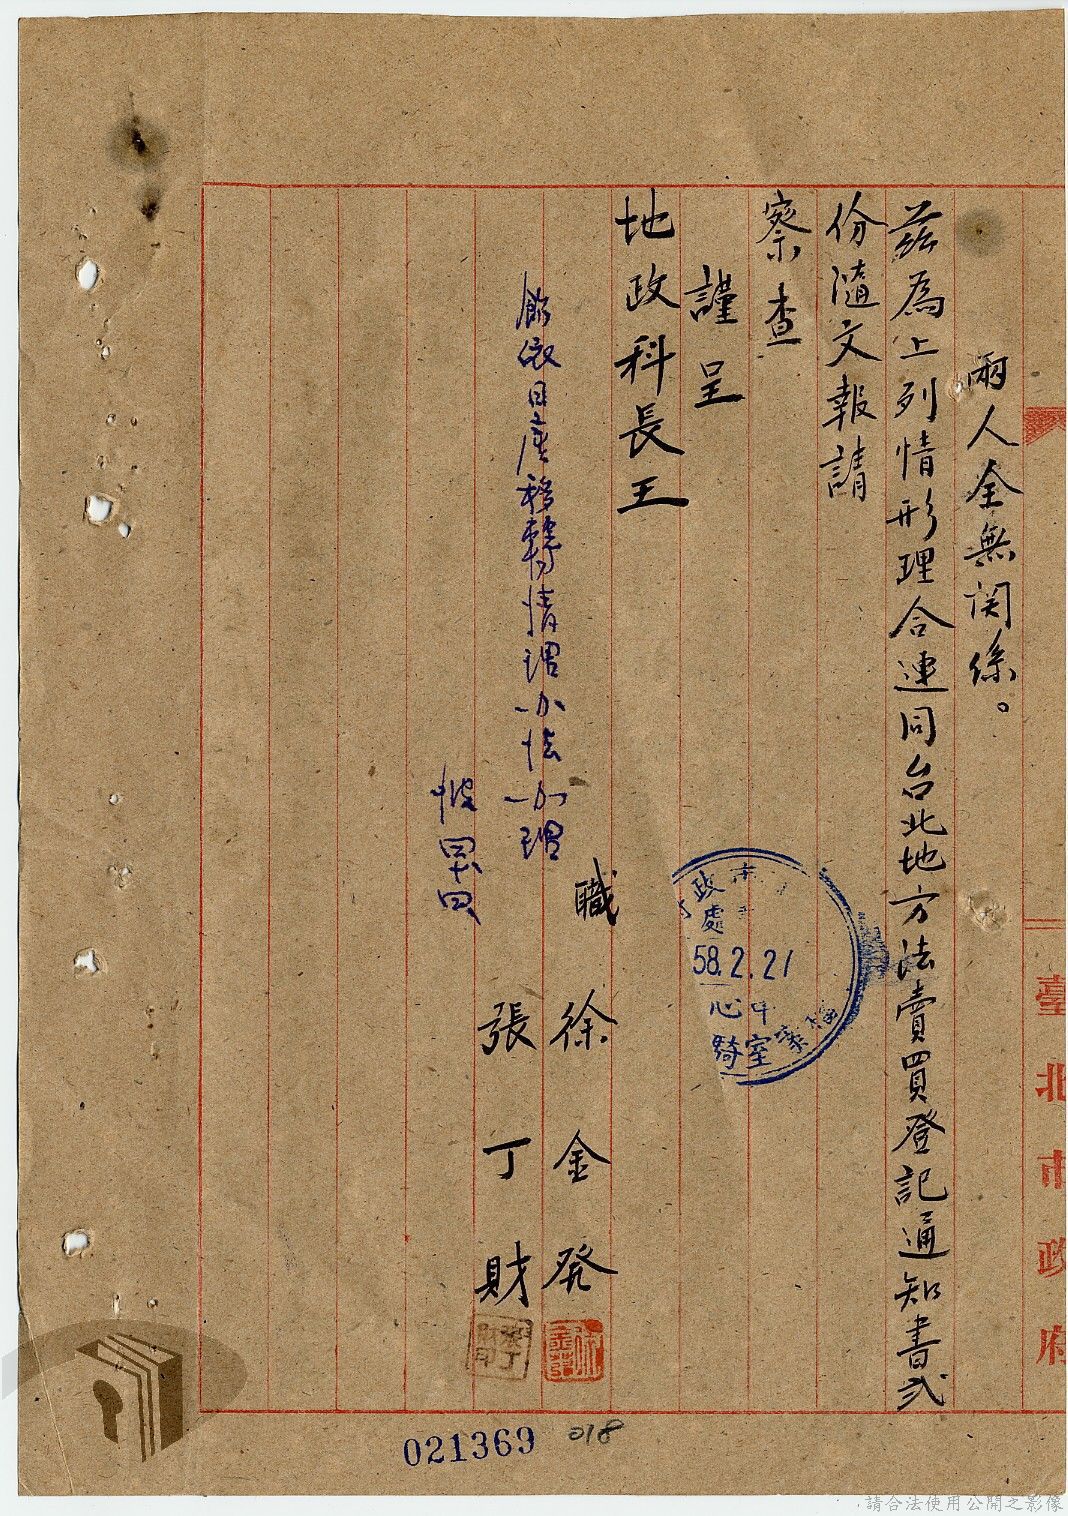 兩人全無関係。
茲為上列情形理合連同台北地方法賣買登記通知書弍
份隨文報請
察查
謹呈
地政科長王
職 徐金発
張丁財
日產移轉情
臺北市政府
58.2.21
021369
018
請合法使用公開之影像